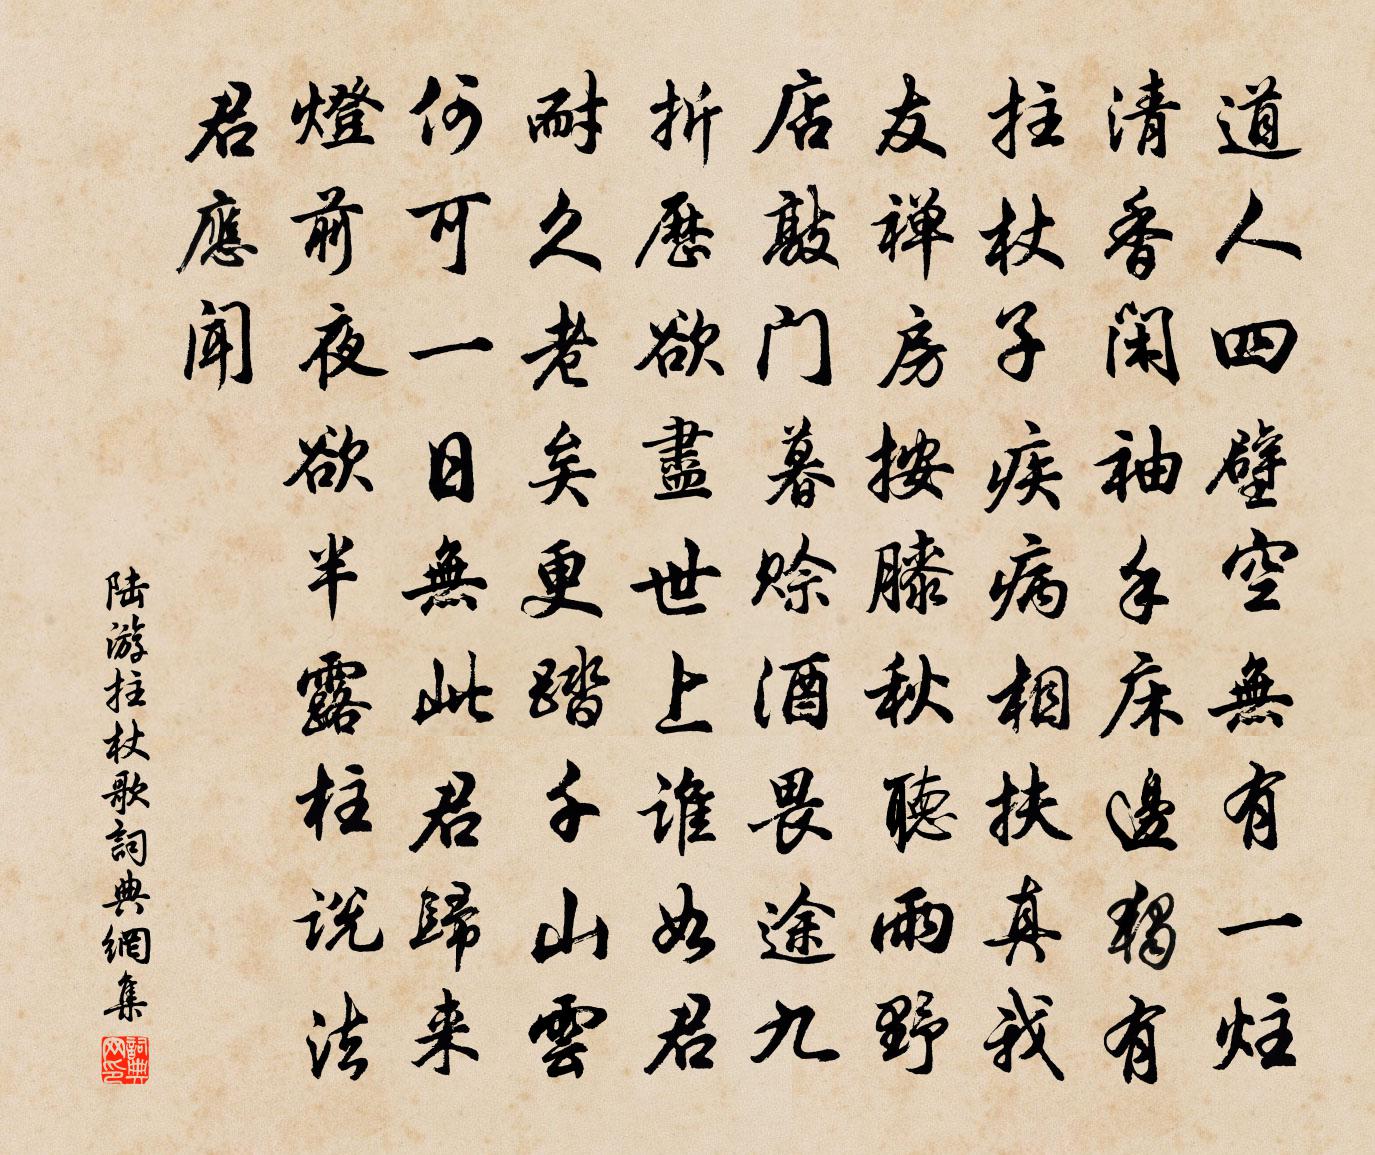 道人四壁空無有一炷
清香閑袖手床邊獨有
拄杖子疾病相扶真我
友禅房按膝秋聽雨野
店敲门暮赊酒畏途九
折歷欲盡世上誰如君
耐久老矣更踏千山雲
何可一日無此君歸来
燈前夜欲半露柱説法
君應聞
陆游拄杖歌詞典網集
詞典网印